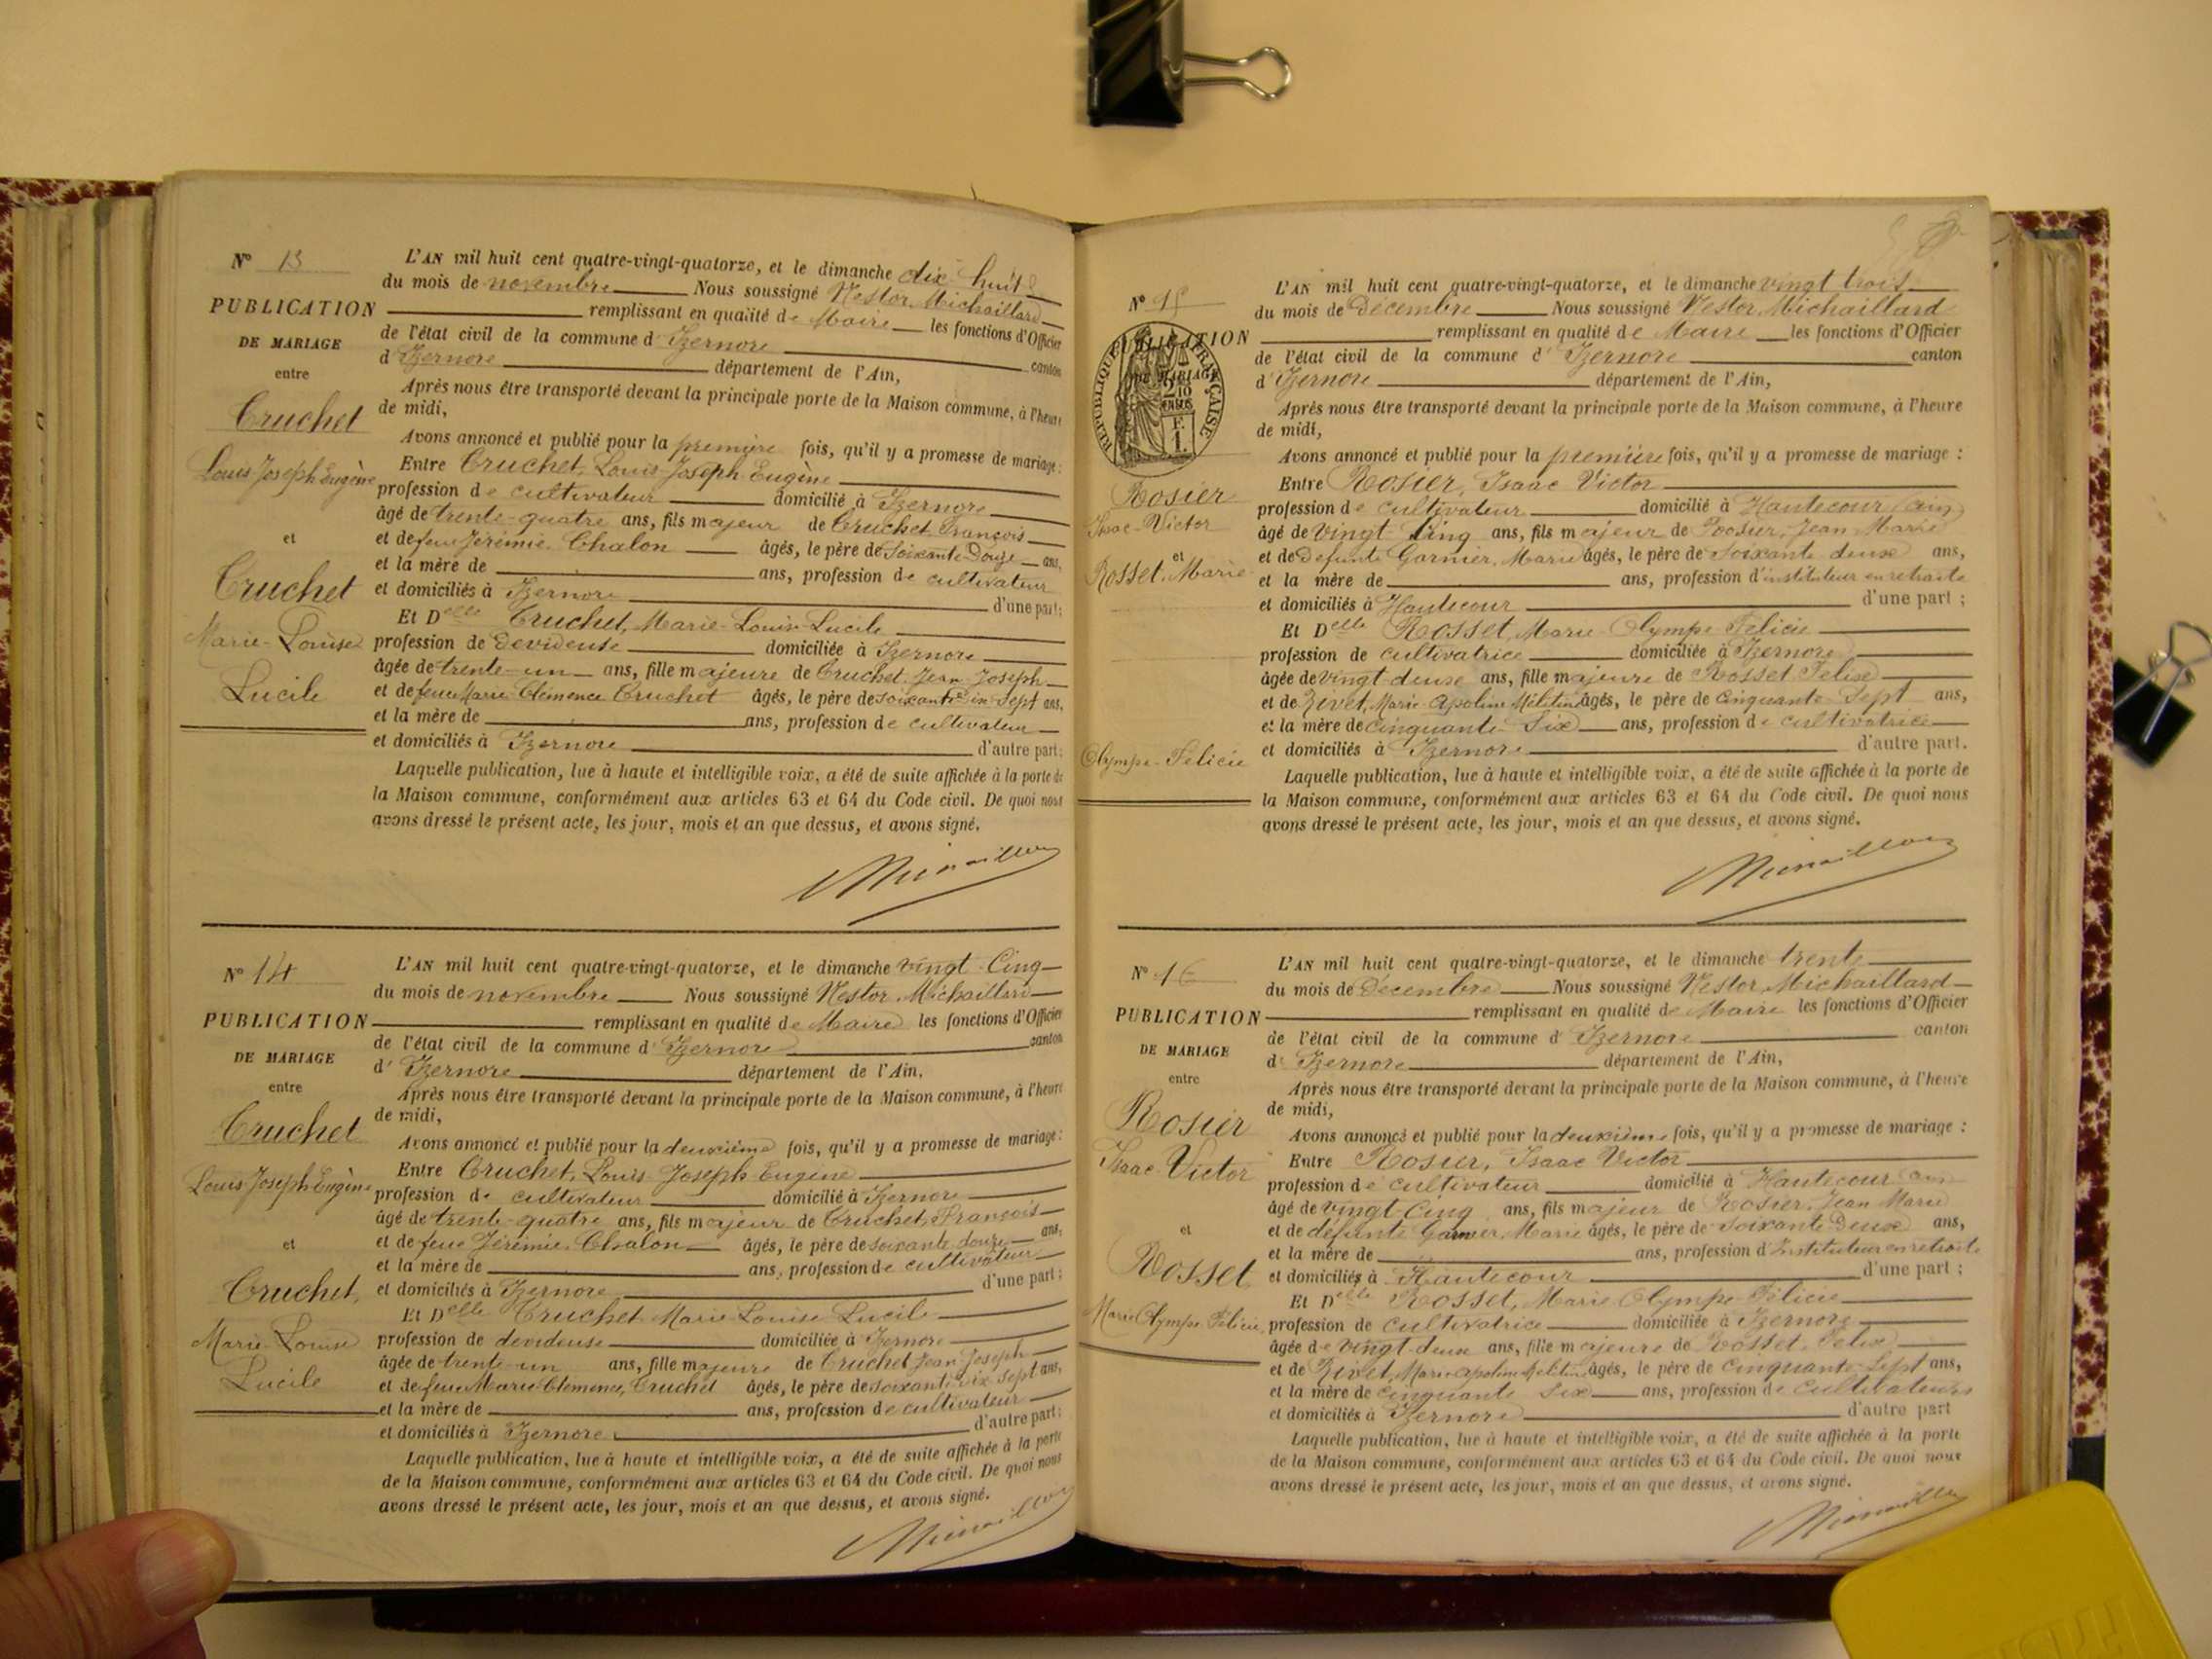 N° 13
PUBLICATION
DE MARIAGE
entre
Cruchet
Louis Joseph Eugène
et
Cruchet
Marie-Louise
Lucile
L'AN mil huit cent quatre-vingt-quatorze, et le dimanche dix huit
du mois de novembre Nous soussigné Nestor Michaillard
remplissant en qualité de Maire les fonctions d'Officier
de l'état civil de la commune d'Izernore
canton
d'Izernore département de l'Ain,
Après nous être transporté devant la principale porte de la Maison commune, à l'heure
de midi,
Avons annoncé et publié pour la première fois, qu'il y a promesse de mariage :
Entre Cruchet, Louis-Joseph-Eugène
profession de cultivateur domicilié à Izernore
âgé de trente-quatre ans, fils majeur de Cruchet François
et de feue Jérémie Chalon âgés, le père de soixante Douze ans,
et la mère de ans, profession de cultivateur
et domiciliés à Izernore d'une part ;
Et Delle Cruchet, Marie-Louise-Lucile
profession de Devideuse domiciliée à Izernore
âgée de trente-un ans, fille majeure de Cruchet Jean-Joseph
et de feue Marie Clémence Cruchet âgés, le père de soixante dix sept ans,
et la mère de ans, profession de cultivateur
et domiciliés à Izernore d'autre part.
Laquelle publication, lue à haute et intelligible voix, a été de suite affichée à la porte de
la Maison commune, conformément aux articles 63 et 64 du Code civil. De quoi nous
avons dressé le présent acte, les jour, mois et an que dessus, et avons signé.
N° 14
PUBLICATION
DE MARIAGE
entre
Cruchet
Louis Joseph Eugène
et
Cruchet,
Marie-Louise
Lucile
L'AN mil huit cent quatre-vingt-quatorze, et le dimanche vingt-Cinq
du mois de novembre Nous soussigné Nestor Michaillard
remplissant en qualité de Maire les fonctions d'Officier
de l'état civil de la commune d'Izernore canton
d'Izernore département de l'Ain,
Après nous être transporté devant la principale porte de la Maison commune, à l'heure
de midi,
Avons annoncé et publié pour la deuxième fois, qu'il y a promesse de mariage :
Entre Cruchet, Louis-Joseph Eugène
profession de cultivateur domicilié à Izernore
âgé de trente-quatre ans, fils majeur de Cruchet, François
et de feue Jérémie Chalon âgés, le père de soixante douze ans,
et la mère de ans, profession de cultivateur
et domiciliés à Izernore d'une part ;
Et Delle Cruchet Marie-Louise Lucile
profession de devideuse domiciliée à Izernore
âgée de trente-un ans, fille majeure de Cruchet Jean Joseph
et de feue Marie Clémence, Cruchet âgés, le père de soixante dix sept ans,
et la mère de ans, profession de cultivateur
et domiciliés à Izernore d'autre part.
Laquelle publication, lue à haute et intelligible voix, a été de suite affichée à la porte
de la Maison commune, conformément aux articles 63 et 64 du Code civil. De quoi nous
avons dressé le présent acte, les jour, mois et an que dessus, et avons signé.
N° 15
PUBLICATION
DE MARIAGE
REPUBLIQUE FRANÇAISE
2/10
EN SUS
F.
1.
Rosier
Isaac-Victor
et
Rosset, Marie
Olympe-Félicie
L'AN mil huit cent quatre-vingt-quatorze, et le dimanche vingt trois
du mois de Décembre Nous soussigné Nestor Michaillard
remplissant en qualité de Maire les fonctions d'Officier
de l'état civil de la commune d'Izernore canton
d'Izernore département de l'Ain,
Après nous être transporté devant la principale porte de la Maison commune, à l'heure
de midi,
Avons annoncé et publié pour la première fois, qu'il y a promesse de mariage :
Entre Rosier, Isaac Victor
profession de cultivateur domicilié à Hautecour (ain)
âgé de vingt Cinq ans, fils majeur de Rosier, Jean Marie
et de Défunte Garnier, Marie âgés, le père de soixante deux ans,
et la mère de ans, profession d'instituteur en retraite
et domiciliés à Hautecour d'une part ;
Et Delle Rosset, Marie-Olympe-Félicie
profession de cultivatrice domiciliée à Izernore
âgée de vingt-deux ans, fille majeure de Rosset Félix
et de Rivet, Marie-Apoline Mélitine âgés, le père de Cinquante-Sept ans,
et la mère de Cinquante-Six ans, profession de cultivatrice
et domiciliés à Izernore d'autre part.
Laquelle publication, lue à haute et intelligible voix, a été de suite affichée à la porte de
la Maison commune, conformément aux articles 63 et 64 du Code civil. De quoi nous
avons dressé le présent acte, les jour, mois et an que dessus, et avons signé.
N° 16
PUBLICATION
DE MARIAGE
entre
Rosier
Isaac-Victor
et
Rosset
Marie Olympe Félicie
L'AN mil huit cent quatre-vingt-quatorze, et le dimanche trente
du mois de Décembre Nous soussigné Nestor Michaillard
remplissant en qualité de Maire les fonctions d'Officier
de l'état civil de la commune d'Izernore canton
d'Izernore département de l'Ain,
Après nous être transporté devant la principale porte de la Maison commune, à l'heure
de midi,
Avons annoncé et publié pour la deuxième fois, qu'il y a promesse de mariage :
Entre Rosier, Isaac Victor
profession de cultivateur domicilié à Hautecour ain
âgé de vingt-Cinq ans, fils majeur de Rosier, Jean Marie
et de défunte Garnier, Marie âgés, le père de soixante Deux ans,
et la mère de ans, profession d'Instituteur en retraite
et domiciliés à Hautecour d'une part ;
Et Delle Rosset, Marie Olympe-Félicie
profession de cultivatrice domiciliée à Izernore
âgée de vingt-deux ans, fille majeure de Rosset Félix
et de Rivet, Marie-Apoline Mélitine âgés, le père de Cinquante-Sept ans,
et la mère de Cinquante Six ans, profession de cultivateurs
et domiciliés à Izernore d'autre part
Laquelle publication, lue à haute et intelligible voix, a été de suite affichée à la porte
de la Maison commune, conformément aux articles 63 et 64 du Code civil. De quoi nous
avons dressé le présent acte, les jour, mois et an que dessus, et avons signé.